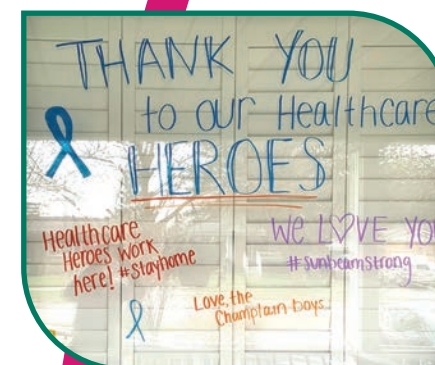 THANK YOU
to our Healthcare
HEROES
Healthcare
Heroes work
here! #stayhome
WE L♡VE YOU
#sunbeamstrong
Love, the
Champlain boys